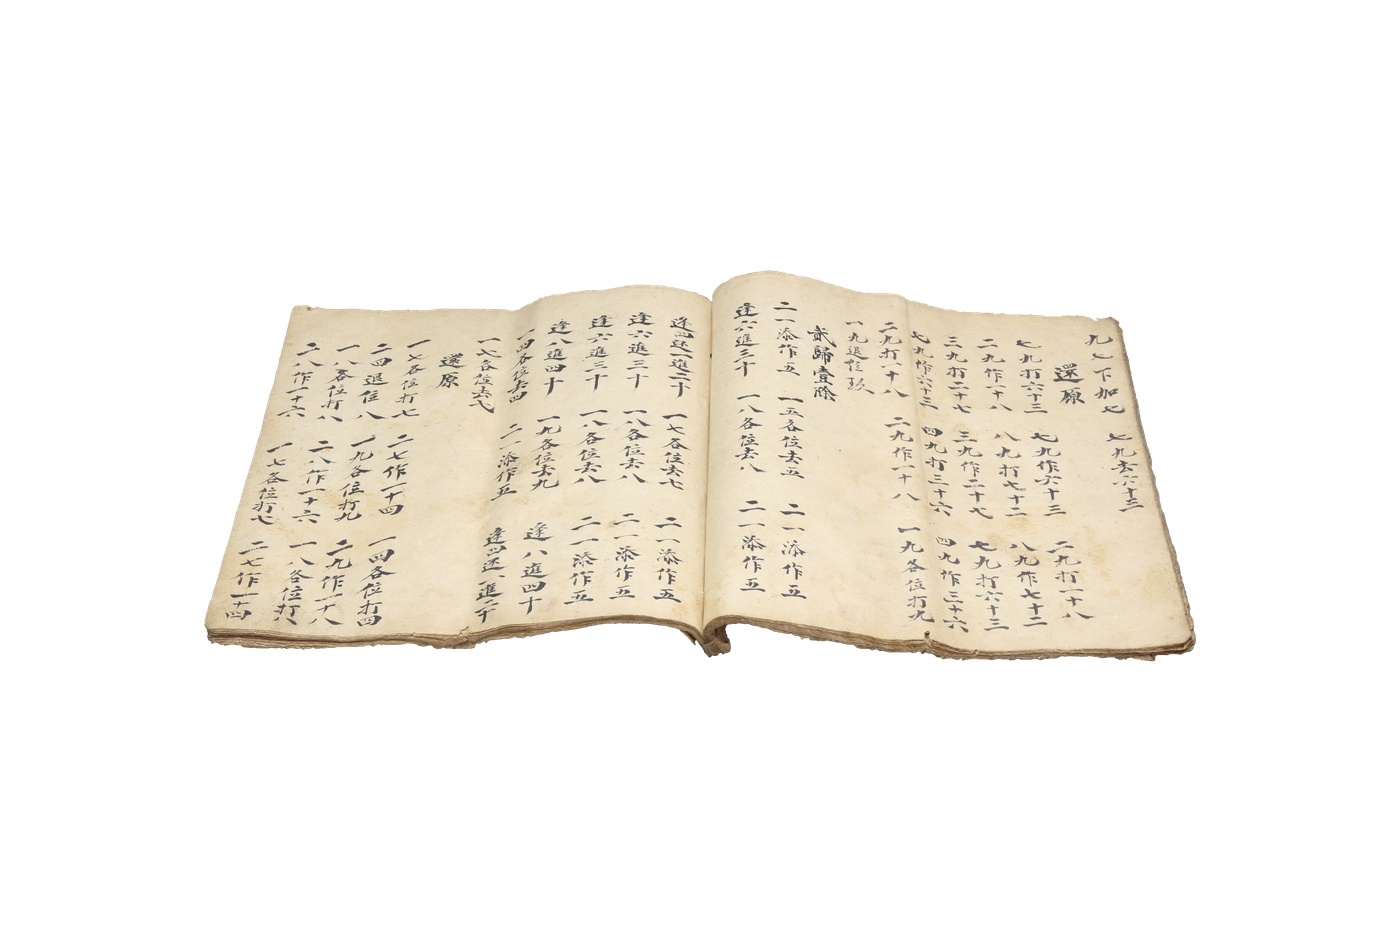 九七下加七 七九去六十三
還原
七九打六十三 七九作六十三 二九打一十八
二九作一十八 八九打七十二 八九作七十二
三九打二十七 三九作二十七 七九打六十三
七九作六十三 四九打三十六 四九作三十六
二九打一十八 二九作一十八 一九各位打九
一九退位玖
貳歸壹除
二一添作五 一五各位去五 二一添作五
逢六進三十 一八各位去八 二一添作五
逢四还一進二十 一七各位去七 二一添作五
逢六進三十 一八各位去八 二一添作五
逢六進三十 一八各位去八 二一添作五
逢八進四十 一九各位去九 逢八進四十
一四各位去四 二一添作五 逢四还一進二十
一七各位去七
還原
一七各位打七 二七作一十四 一四各位打四
二四退位八 一九各位打九 二九作一十八
一八各位打八 二八作一十六 一八各位打八
二八作一十六 一七各位打七 二七作一十四